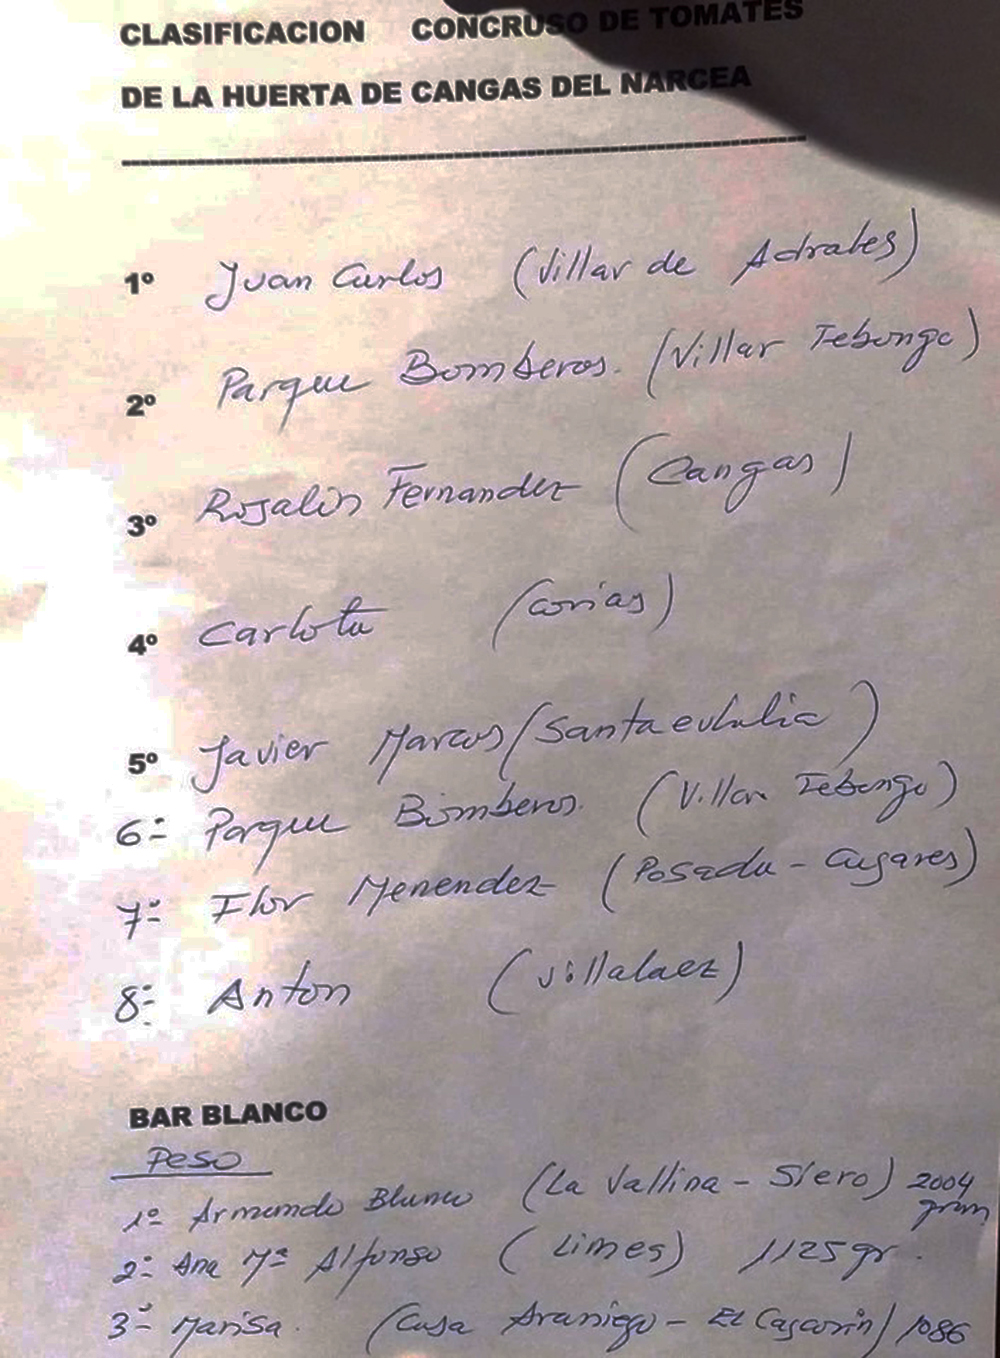 CLASIFICACION CONCRUSO DE TOMATES
DE LA HUERTA DE CANGAS DEL NARCEA
1º Juan Carlos (Villar de Adralès)
2º Parque Bomberos. (Villar Tebongo)
3º Rosalin Fernandez (Cangas)
4º Carlota (Corias)
5º Javier Marcos (Santa eulalia)
6º Parque Bomberos. (Villar Tebongo)
7º Flor Menendez (Posada - Cugares)
8º Anton (Villalaez)
BAR BLANCO
Peso
1º Armando Blanco (La Vallina - Siero) 2004 gram
2º Ana Mª Alfonso (Limes) 1125 gr.
3º Marisa. (Casa Araniego - El Cascarin) 1086